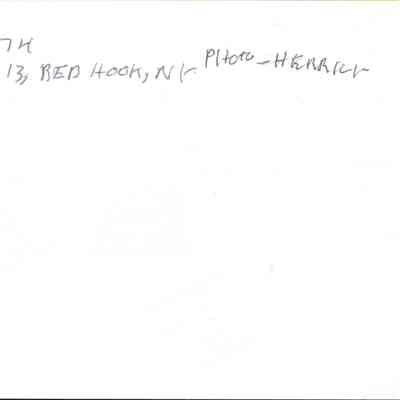 74
13, RED HOOK, NY PHOTO - HERRICK